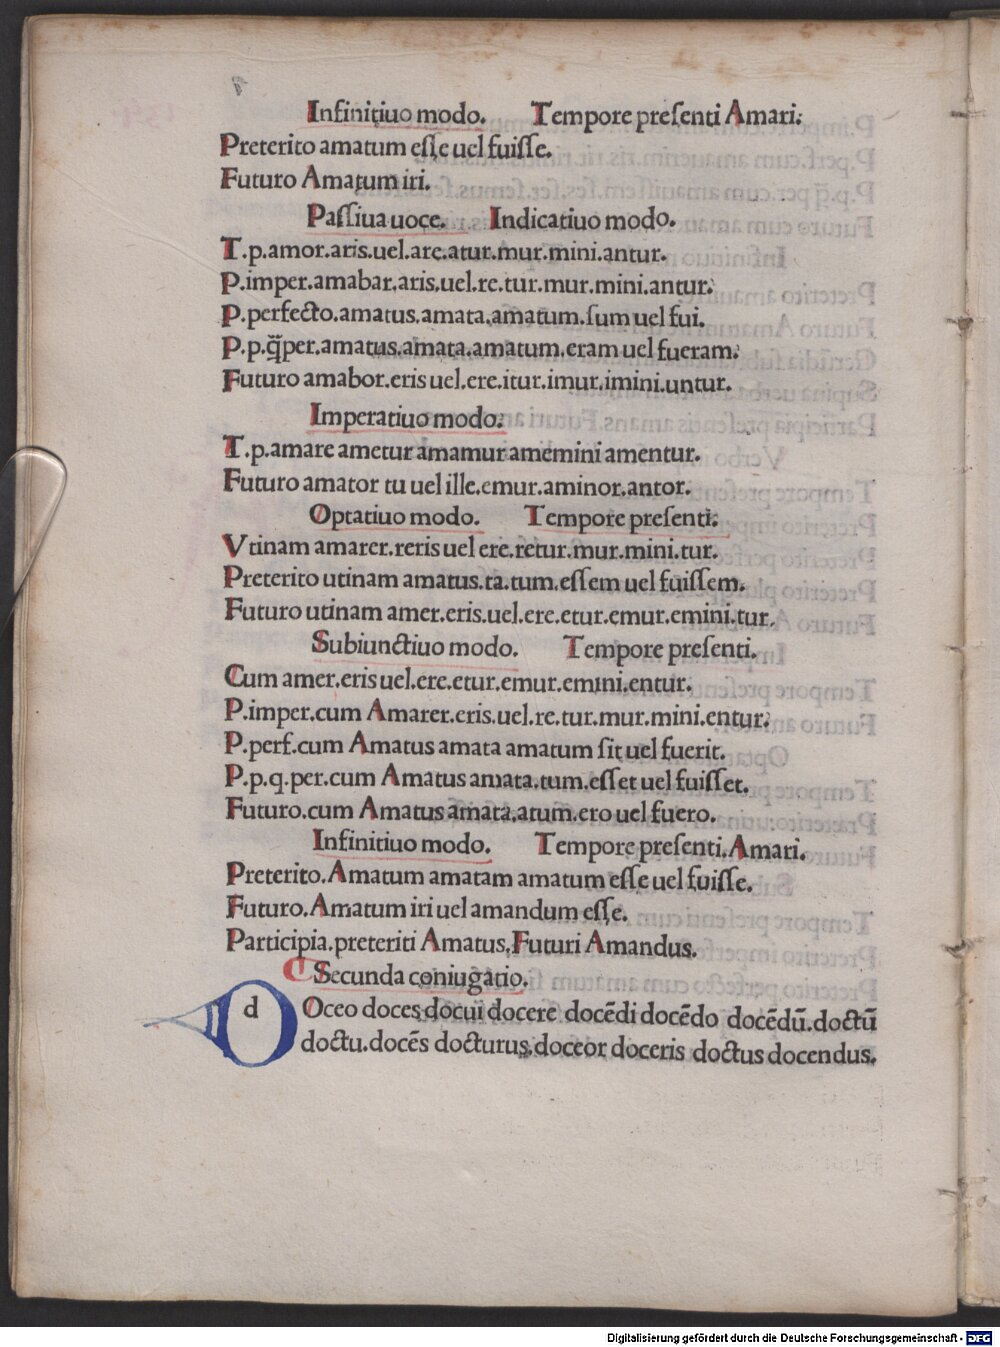 Infinitiuo modo. Tempore preſenti Amari.
Preterito amatum eſſe uel fuiſſe.
Futuro Amatum iri.
Paſſiua uoce. Indicatiuo modo.
T.p.amor.aris.uel.are.atur.mur.mini.antur.
P.imper.amabar.aris.uel.re.tur.mur.mini.antur.
P.perfecto.amatus.amata.amatum.ſum uel fui.
P.p.q̃per.amatus.amata.amatum.eram uel fueram.
Futuro amabor.eris uel.ere.itur.imur.imini.untur.
Imperatiuo modo.
T.p.amare ametur amamur amemini amentur.
Futuro amator tu uel ille.emur.aminor.antor.
Optatiuo modo. Tempore preſenti.
Vtinam amarer.reris uel ere.retur.mur.mini.tur.
Preterito utinam amatus.ta.tum.eſſem uel fuiſſem.
Futuro utinam amer.eris.uel.ere.etur.emur.emini.tur.
Subiunctiuo modo. Tempore preſenti.
Cum amer.eris uel.ere.etur.emur.emini.entur.
P.imper.cum Amarer.eris.uel.re.tur.mur.mini.entur.
P.perf.cum Amatus amata amatum ſit uel fuerit.
P.p.q.per.cum Amatus amata.tum.eſſet uel fuiſſet.
Futuro.cum Amatus amata.atum.ero uel fuero.
Infinitiuo modo. Tempore preſenti.Amari.
Preterito.Amatum amatam amatum eſſe uel fuiſſe.
Futuro.Amatum iri uel amandum eſſe.
Participia.preteriti Amatus.Futuri Amandus.
Secunda coniugatio.
dOceo doces docui docere docẽdi docẽdo docẽdũ.doctũ
doctu.docẽs docturus.doceor doceris doctus docendus.
Digitalisierung gefördert durch die Deutsche Forschungsgemeinschaft - DFG